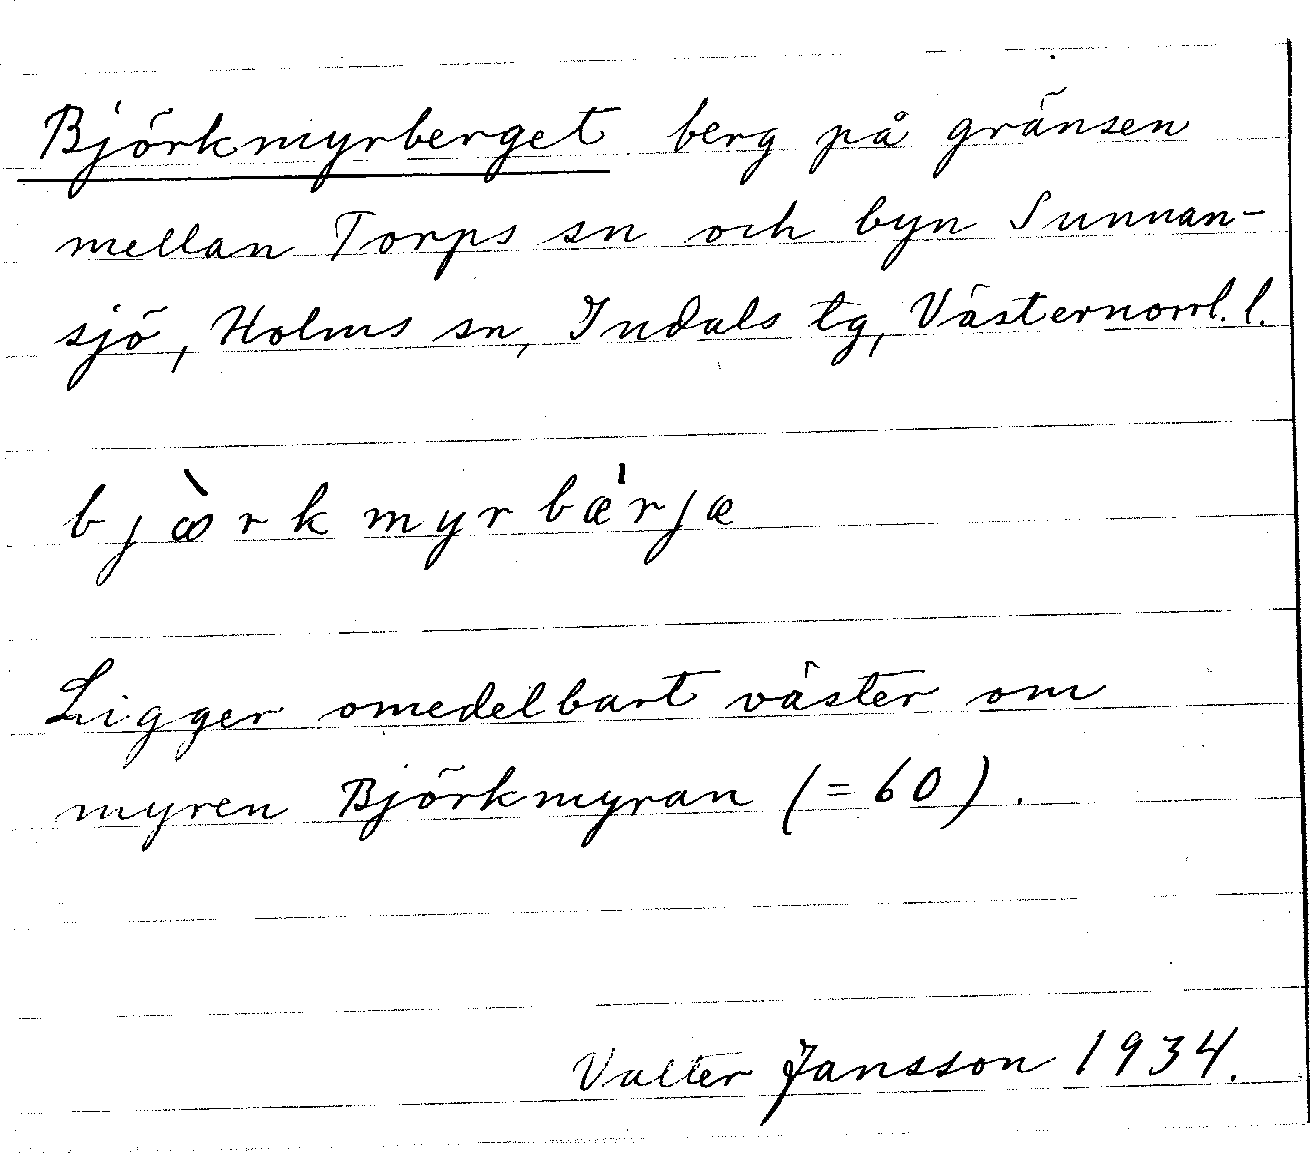 Björkmyrberget berg på gränsen
mellan Torps sn och byn Sunnan-
sjö, Holms sn, Indals tg, Västernorrl. l.
bjꝏ̀rkmyrbæ̍rjæ
Ligger omedelbart väster om
myren Björkmyran (=60).
Valter Jansson 1934.